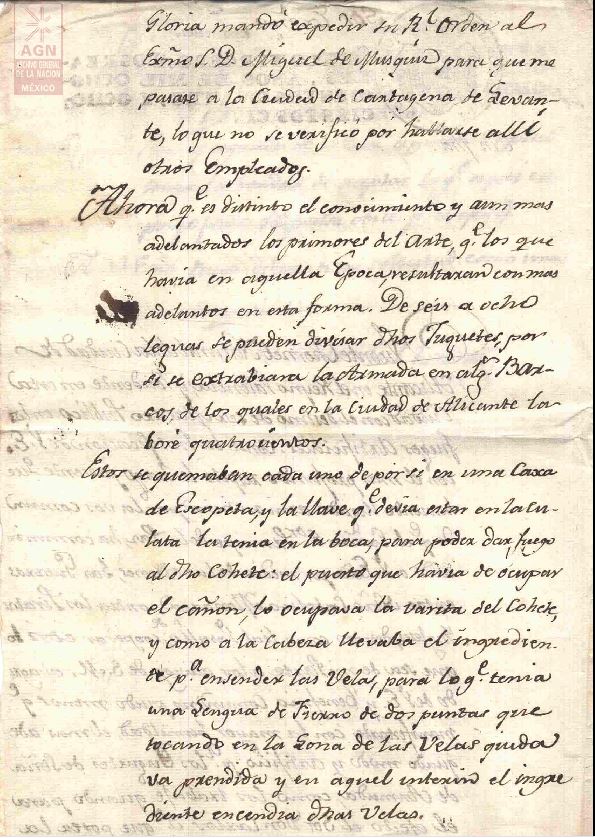 AGN
ARCHIVO GENERAL
DE LA NACIÓN
MÉXICO
Gloria mandó expedir su Rl. Orden al
Exmo S. D. Miguel de Musquiz para que me
pasase a la Ciudad de Cartagena de Levan-
te, lo que no se verifico por hallarse alli
otros Empleados.
Ahora qe. es distinto el conocimiento y aun mas
adelantados los primores del Arte, qe. los que
havia en aquella Epoca, resultaran con mas
adelantos en esta forma. De seis a ocho
leguas se pueden divisar dhos Tuquetes, por
si se extrabiara la Armada en algs. Bar-
cos, de los quales en la Ciudad de Alicante la-
boré quatrocientos.
Estos se quemaban cada uno de por si en una Caxa
de Escopeta, y la llave qe. devia estar en la cu-
lata la tenia en la boca, para poder dar fuego
al dho Cohete: el puerto que havia de ocupar
el cañon, lo ocupava la varita del Cohete,
y como a la Cabeza llevaba el ingredien-
te pa. ensender las Velas, para lo qe. tenia
una Lengua de Fierro de dos puntas que
tocando en la Lona de las Velas queda
va prendida y en aquel interin el ingre
diente encendia dhas Velas.